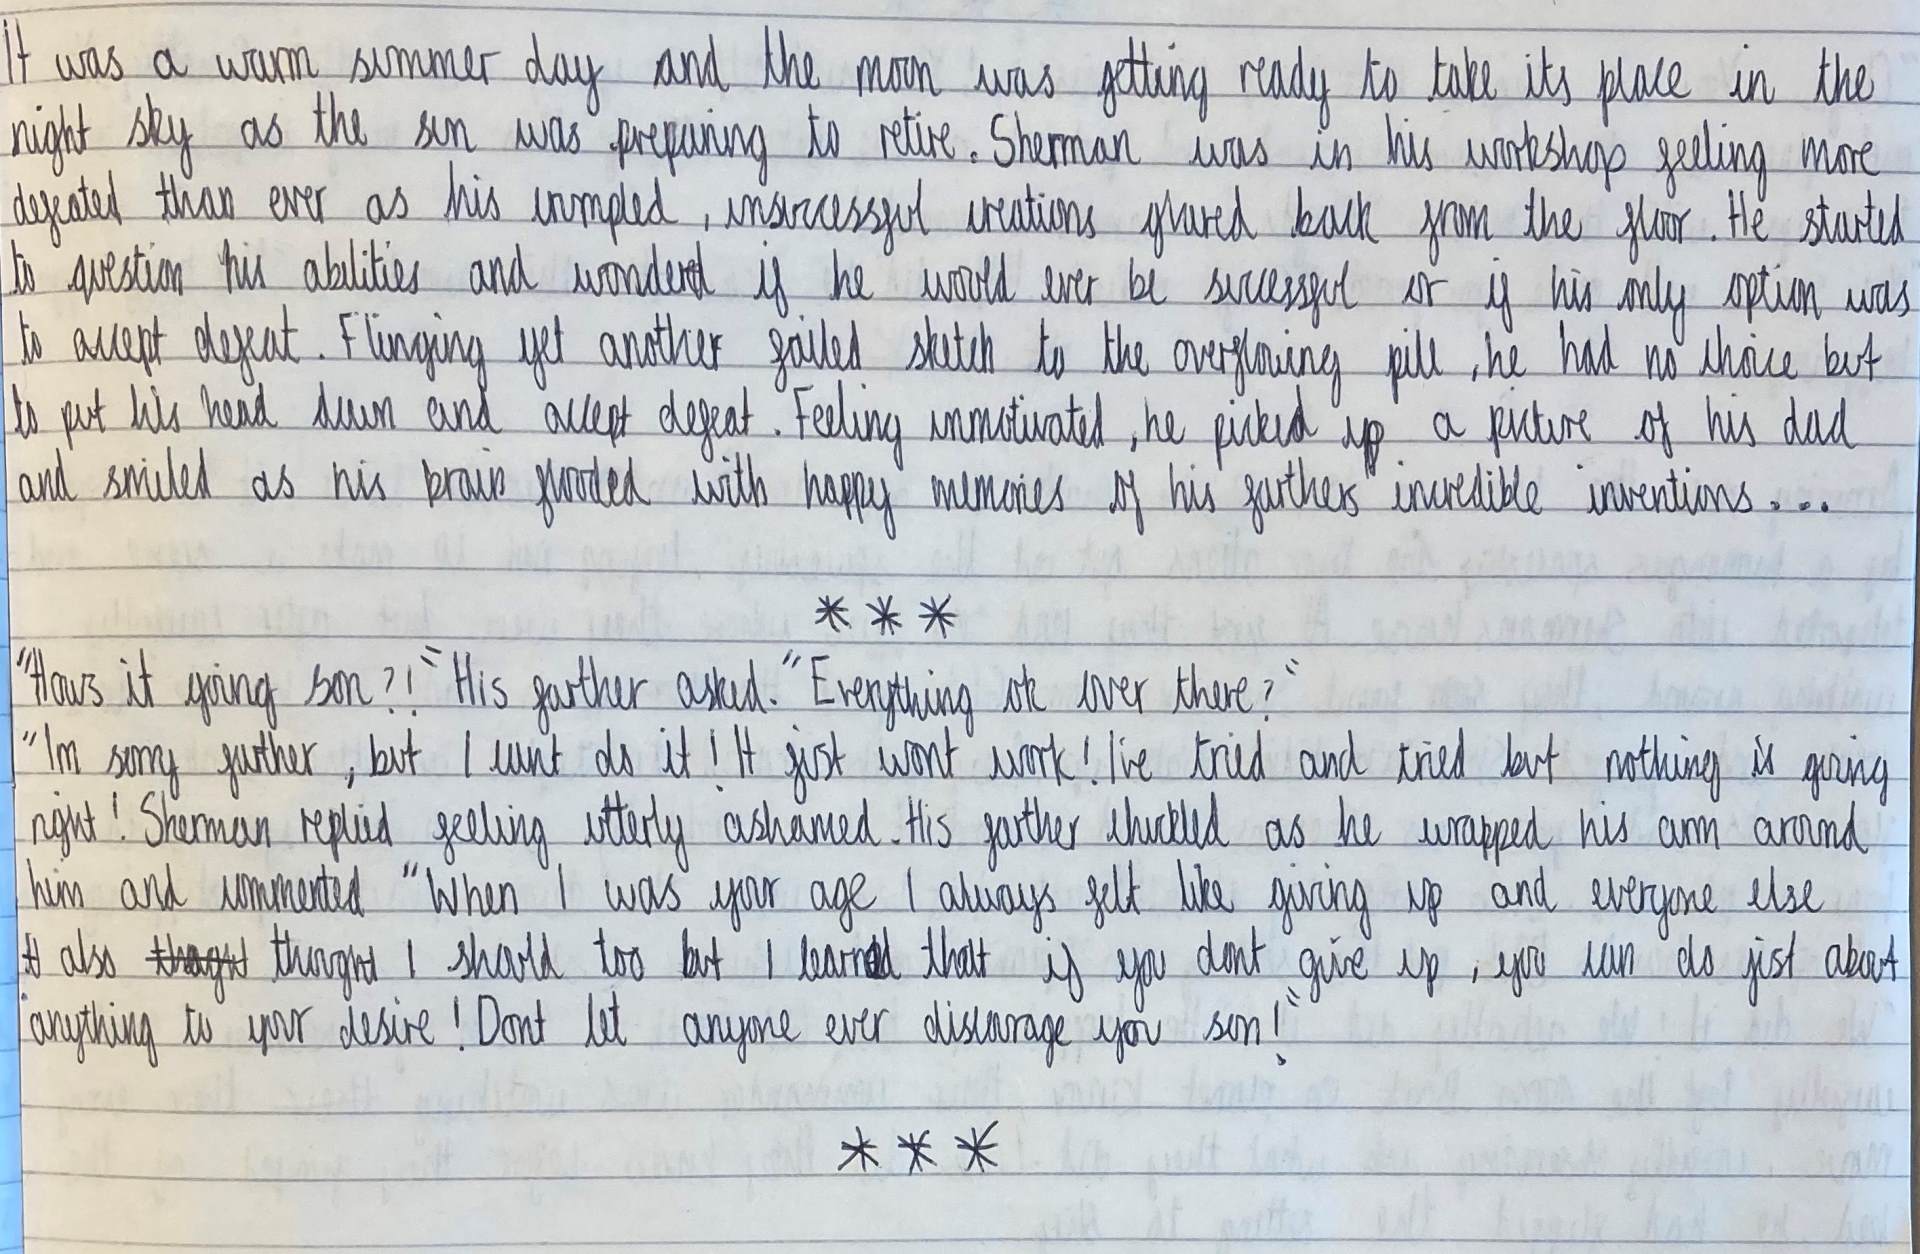 It was a warm summer day and the moon was getting ready to take its place in the
night sky as the sun was preparing to retire. Sherman was in his workshop feeling more
defeated than ever as his crumpled, unsuccessful creations glared back from the floor. He started
to question his abilities and wonderd if he would ever be successful or if his only option was
to accept defeat. Flinging yet another failed sketch to the overflowing pill, he had no choice but
to put his head down and accept defeat. Feeling unmotivated, he picked up a picture of his dad
and smiled as his brain flooded with happy memories of his farthers incredible inventions...
* * *
"Hows it going son?!" His farther asked. "Everything ok over there?"
"Im sorry farther, but I cant do it! It just wont work! I've tried and tried but nothing is going
right! Sherman replied feeling utterly ashamed. His farther chuckled as he wrapped his arm around
him and commented "When I was your age I always felt like giving up and everyone else
also thought I should too but I learned that if you dont give up, you can do just about
anything to your desire! Dont let anyone ever discourage you son!"
* * *